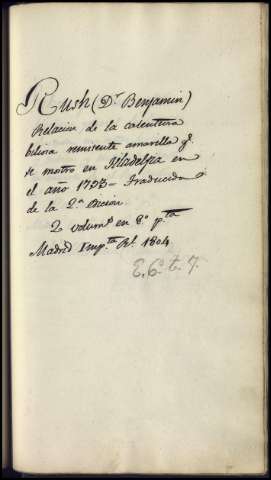 Rush (Dr Benjamin)
Relacion de la calentura
biliosa remitente amarilla q.
se mostro en Filadelfia en
el año 1793 - Traducida
de la 2.a edicion
2 volums en 8.o pta
Madrid Imp.ta Rl 1804
E. 6.a t. 7.